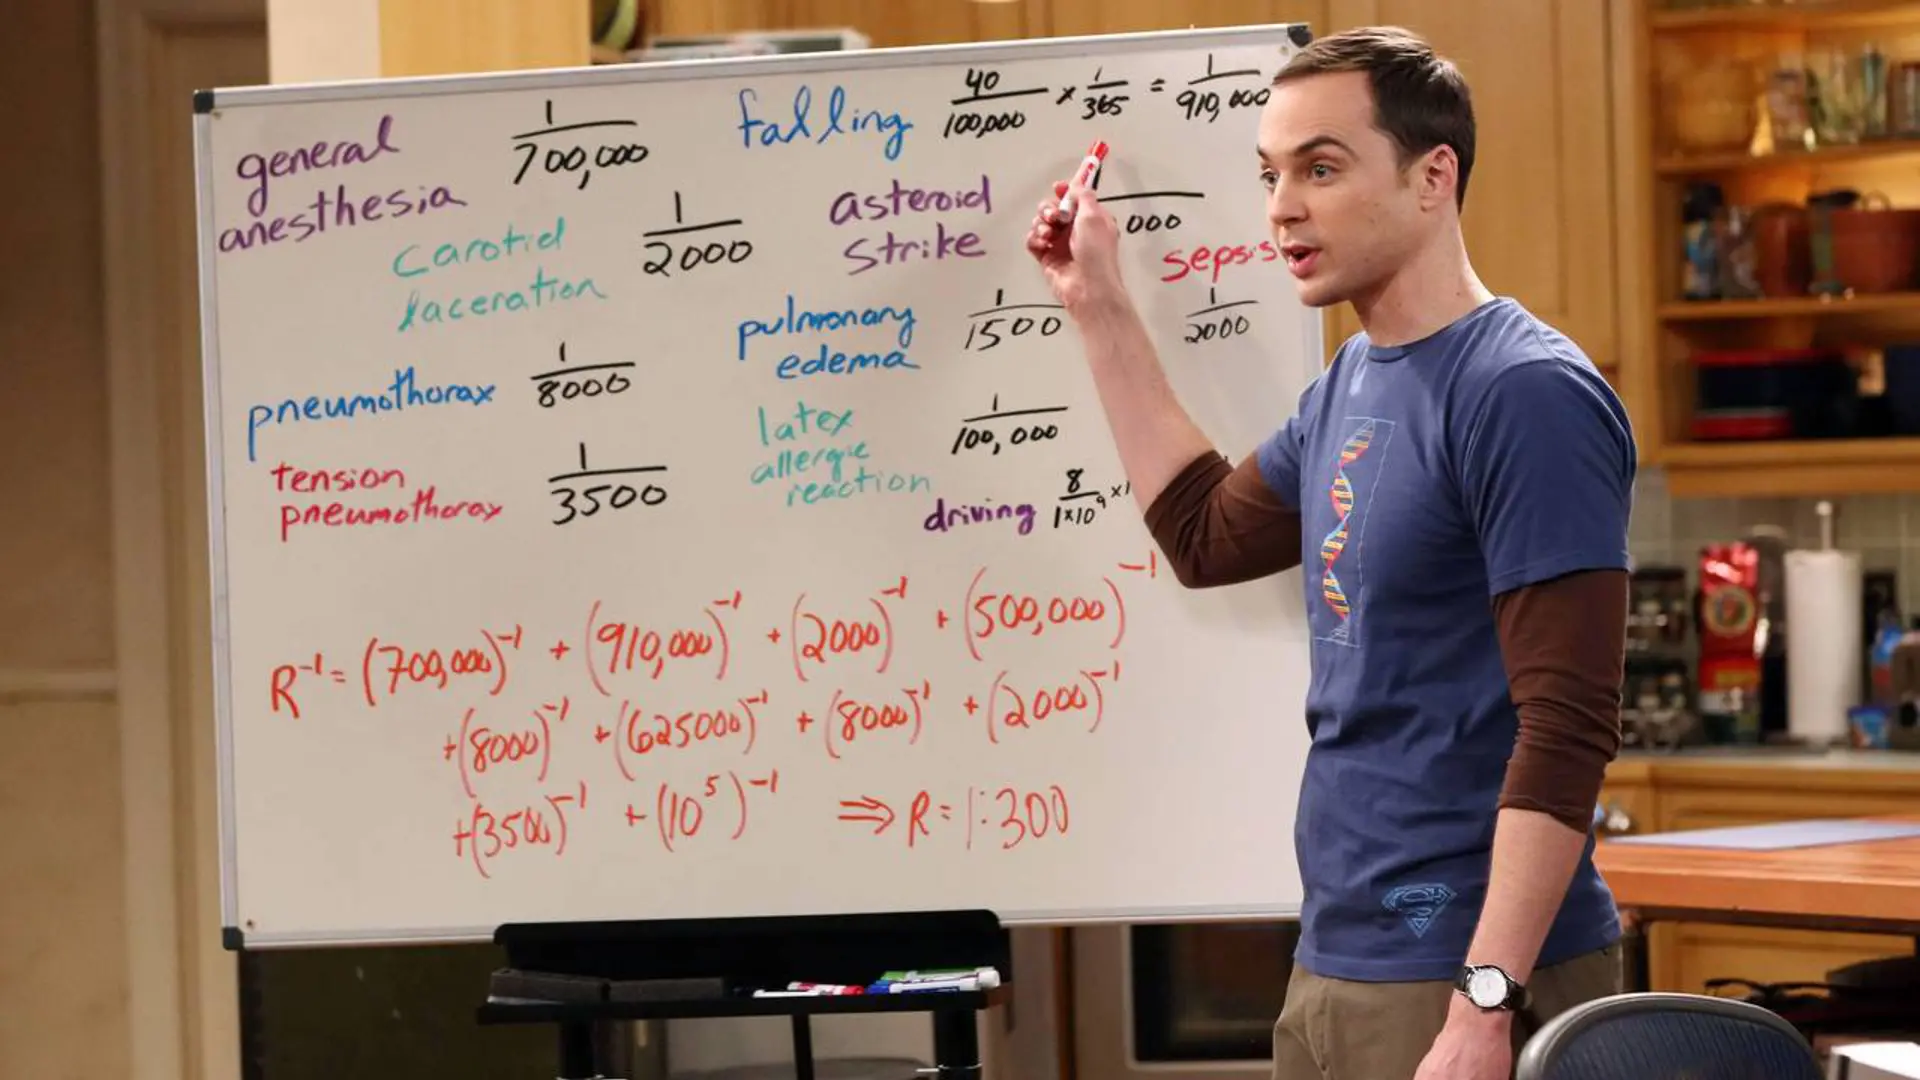 general
anesthesia
1
700,000
carotid
laceration
1
2000
pneumothorax
1
8000
tension
pneumothorax
1
3500
falling
40
100,000
×
1
365
=
1
910,000
asteroid
strike
000
sepsis
1
2000
pulmonary
edema
1
1500
latex
allergic
reaction
1
100,000
driving
8
1×10⁹
×1
R⁻¹= (700,000)⁻¹ + (910,000)⁻¹ + (2000)⁻¹ + (500,000)⁻¹
+(8000)⁻¹ +(625000)⁻¹ + (8000)⁻¹ + (2000)⁻¹
+(3500)⁻¹ + (10⁵)⁻¹ ⇒ R = 1:300